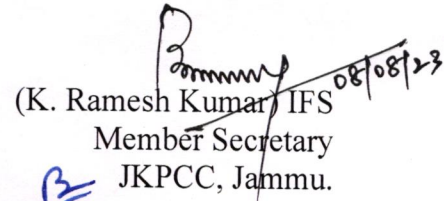 08/08/23
(K. Ramesh Kumar) IFS
Member Secretary
JKPCC, Jammu.